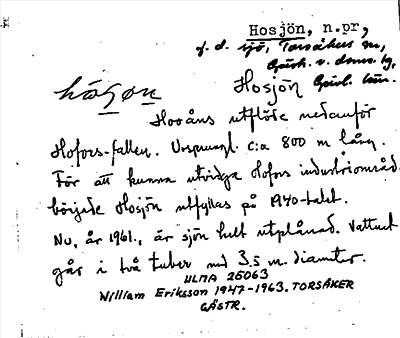 Hosjön, n.pr,
f. d. sjö, Torsåkers sn,
Gästr. v. doms. tg,
Hosjön Gävl. län.
Hooåns utflöde nedanför
Hofors-fallen. Urspungl. c:a 800 m lång.
För att kunna utvidga Hofors industriområd
började Hosjön utfyllas på 1940-talet.
Nu, år 1961., är sjön helt utplånad. Vattnet
går i två tuber med 3,5 m. diameter.
ULMA 25063
William Eriksson 1947-1963. TORSÅKER
GÄSTR.